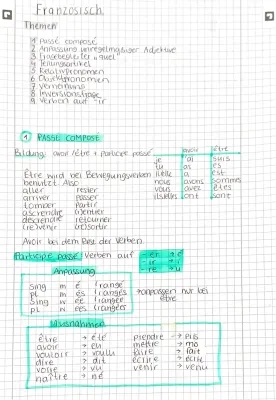 Französisch
Themen
1 Passé composé
2 Anpassung unregelmäßiger Adjektive
3 Fragebegleiter "quel"
4 Teilungsartikel
5 Relativpronomen
6 Objektpronomen
7 Verneinung
8 Inversionsfrage
9 Verben auf -ir
1 PASSÉ COMPOSÉ
Bildung: avoir/être + participe passé
avoir être
je 'ai suis
tu as es
il/elle a est
nous avons sommes
vous avez êtes
ils/elles ont sont
Être wird bei Bewegungsverben
benutzt. Also
aller rester
arriver passer
tomber partir
descendre (r)entrer
descendre retourner
(re)venir (re)sortir
Avoir bei dem Rest der Verben.
Participe passé: Verben auf -er → é
-ir → i
-re → u
Anpassung
Sing m é (rangé
pl m és (rangés
sing w ée (rangée
pl w ées (rangées
→ anpassen nur bei
être
Ausnahmen
être → été prendre → pris
avoir → eu mettre → mis
vouloir → voulu faire → fait
dire → dit écrire → écrit
voir → vu venir → venu
naître → né